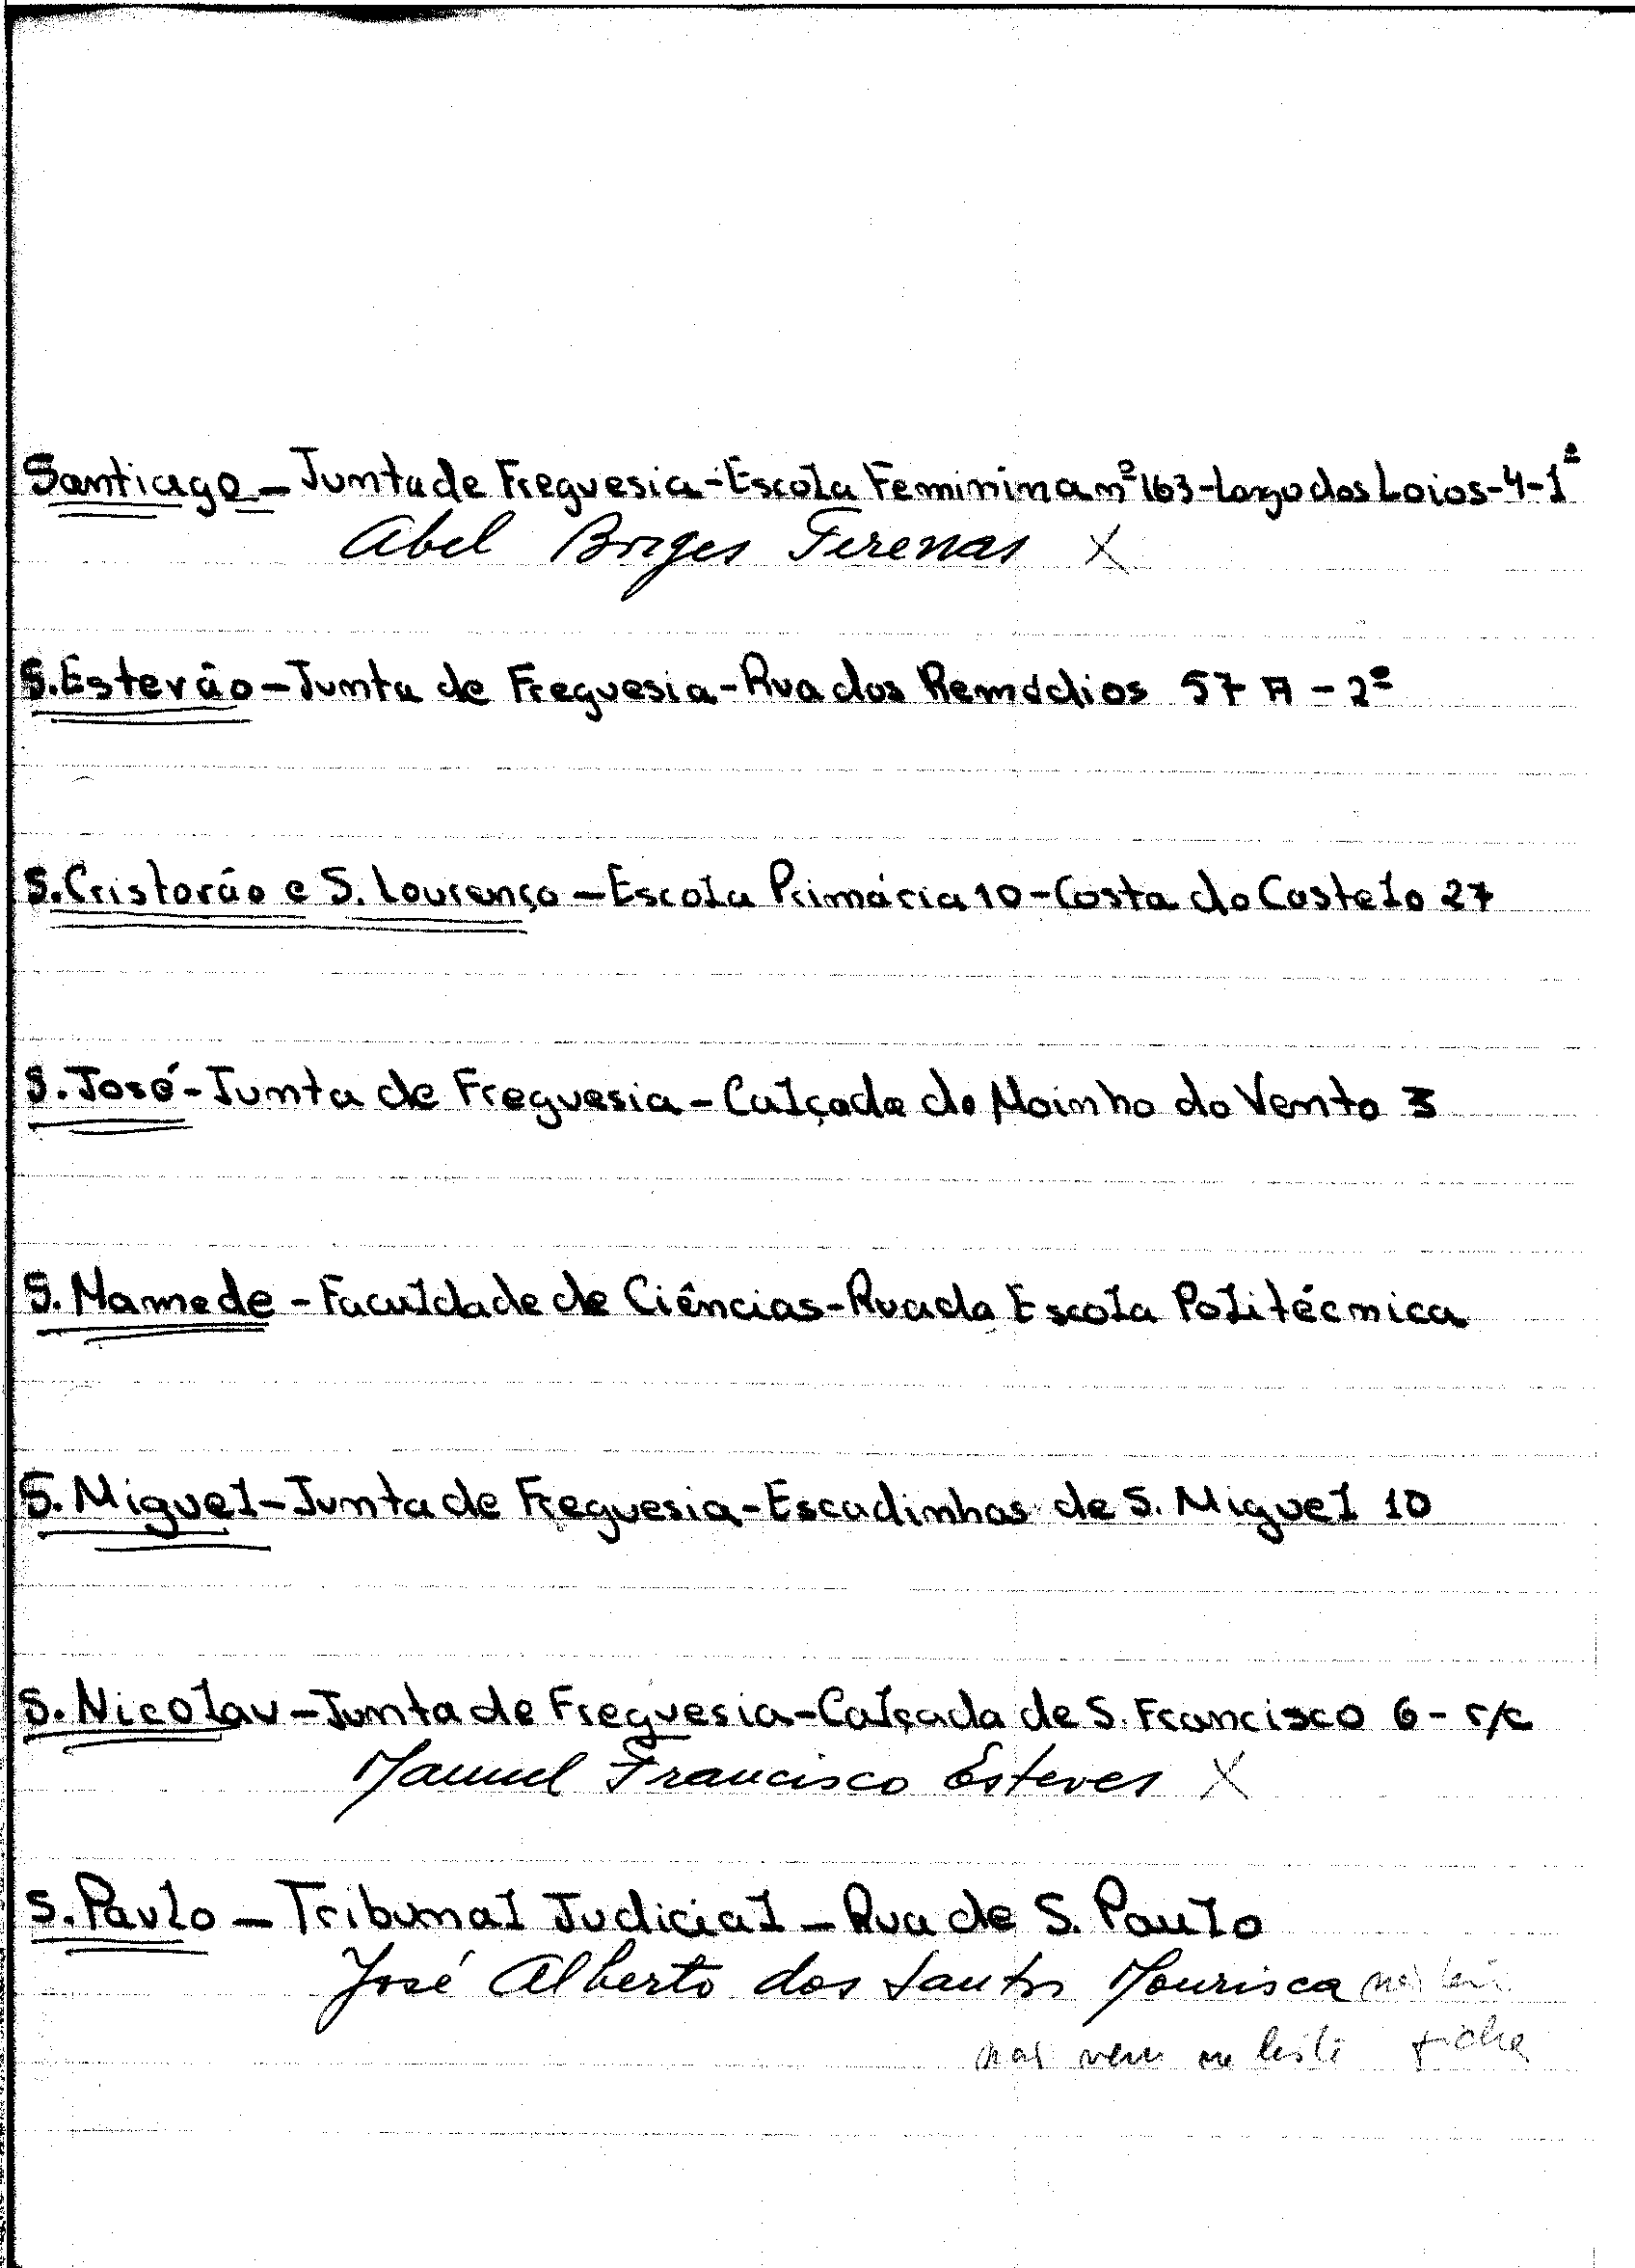 Santiago - Junta de Freguesia - Escola Feminina nº 163 - Largo dos Loios - 4 - 1º
Abel Borges Ferenas X
S. Estevão - Junta de Freguesia - Rua dos Remédios 57 A - 2º
S. Cristovão e S. Lourenço - Escola Primária 10 - Costa do Castelo 27
S. José - Junta de Freguesia - Calçada do Moinho do Vento 3
S. Mamede - Faculdade de Ciências - Rua da Escola Politécnica
S. Miguel - Junta de Freguesia - Escadinhas de S. Miguel 10
S. Nicolau - Junta de Freguesia - Calçada de S. Francisco 6 - r/c
Manuel Francisco Esteves X
S. Paulo - Tribunal Judicial - Rua de S. Paulo
José Alberto dos Santos Mourisca não
vem